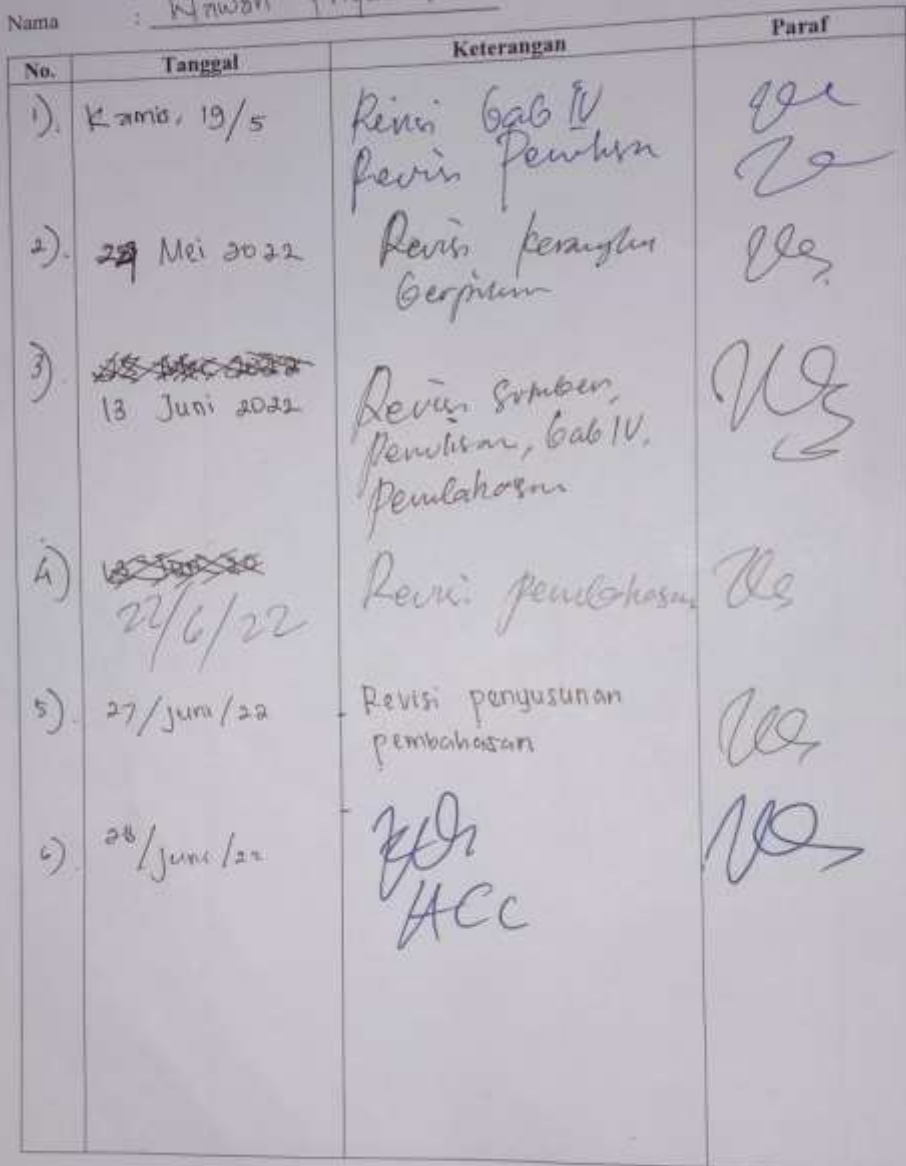 Nama :
No. Tanggal Keterangan Paraf
1). Kamis, 19/5 Revisi bab IV
Revisi Penulisan
2). Mei 2022 Revisi kerangka
berpikir
3). 13 Juni 2022 Revisi sumber,
Penulisan, bab IV,
Pembahasan
4) 22/6/22 Revisi pembahasan
5). 27/juni/22 Revisi penyusunan
pembahasan
6). 28/juni/22
ACC